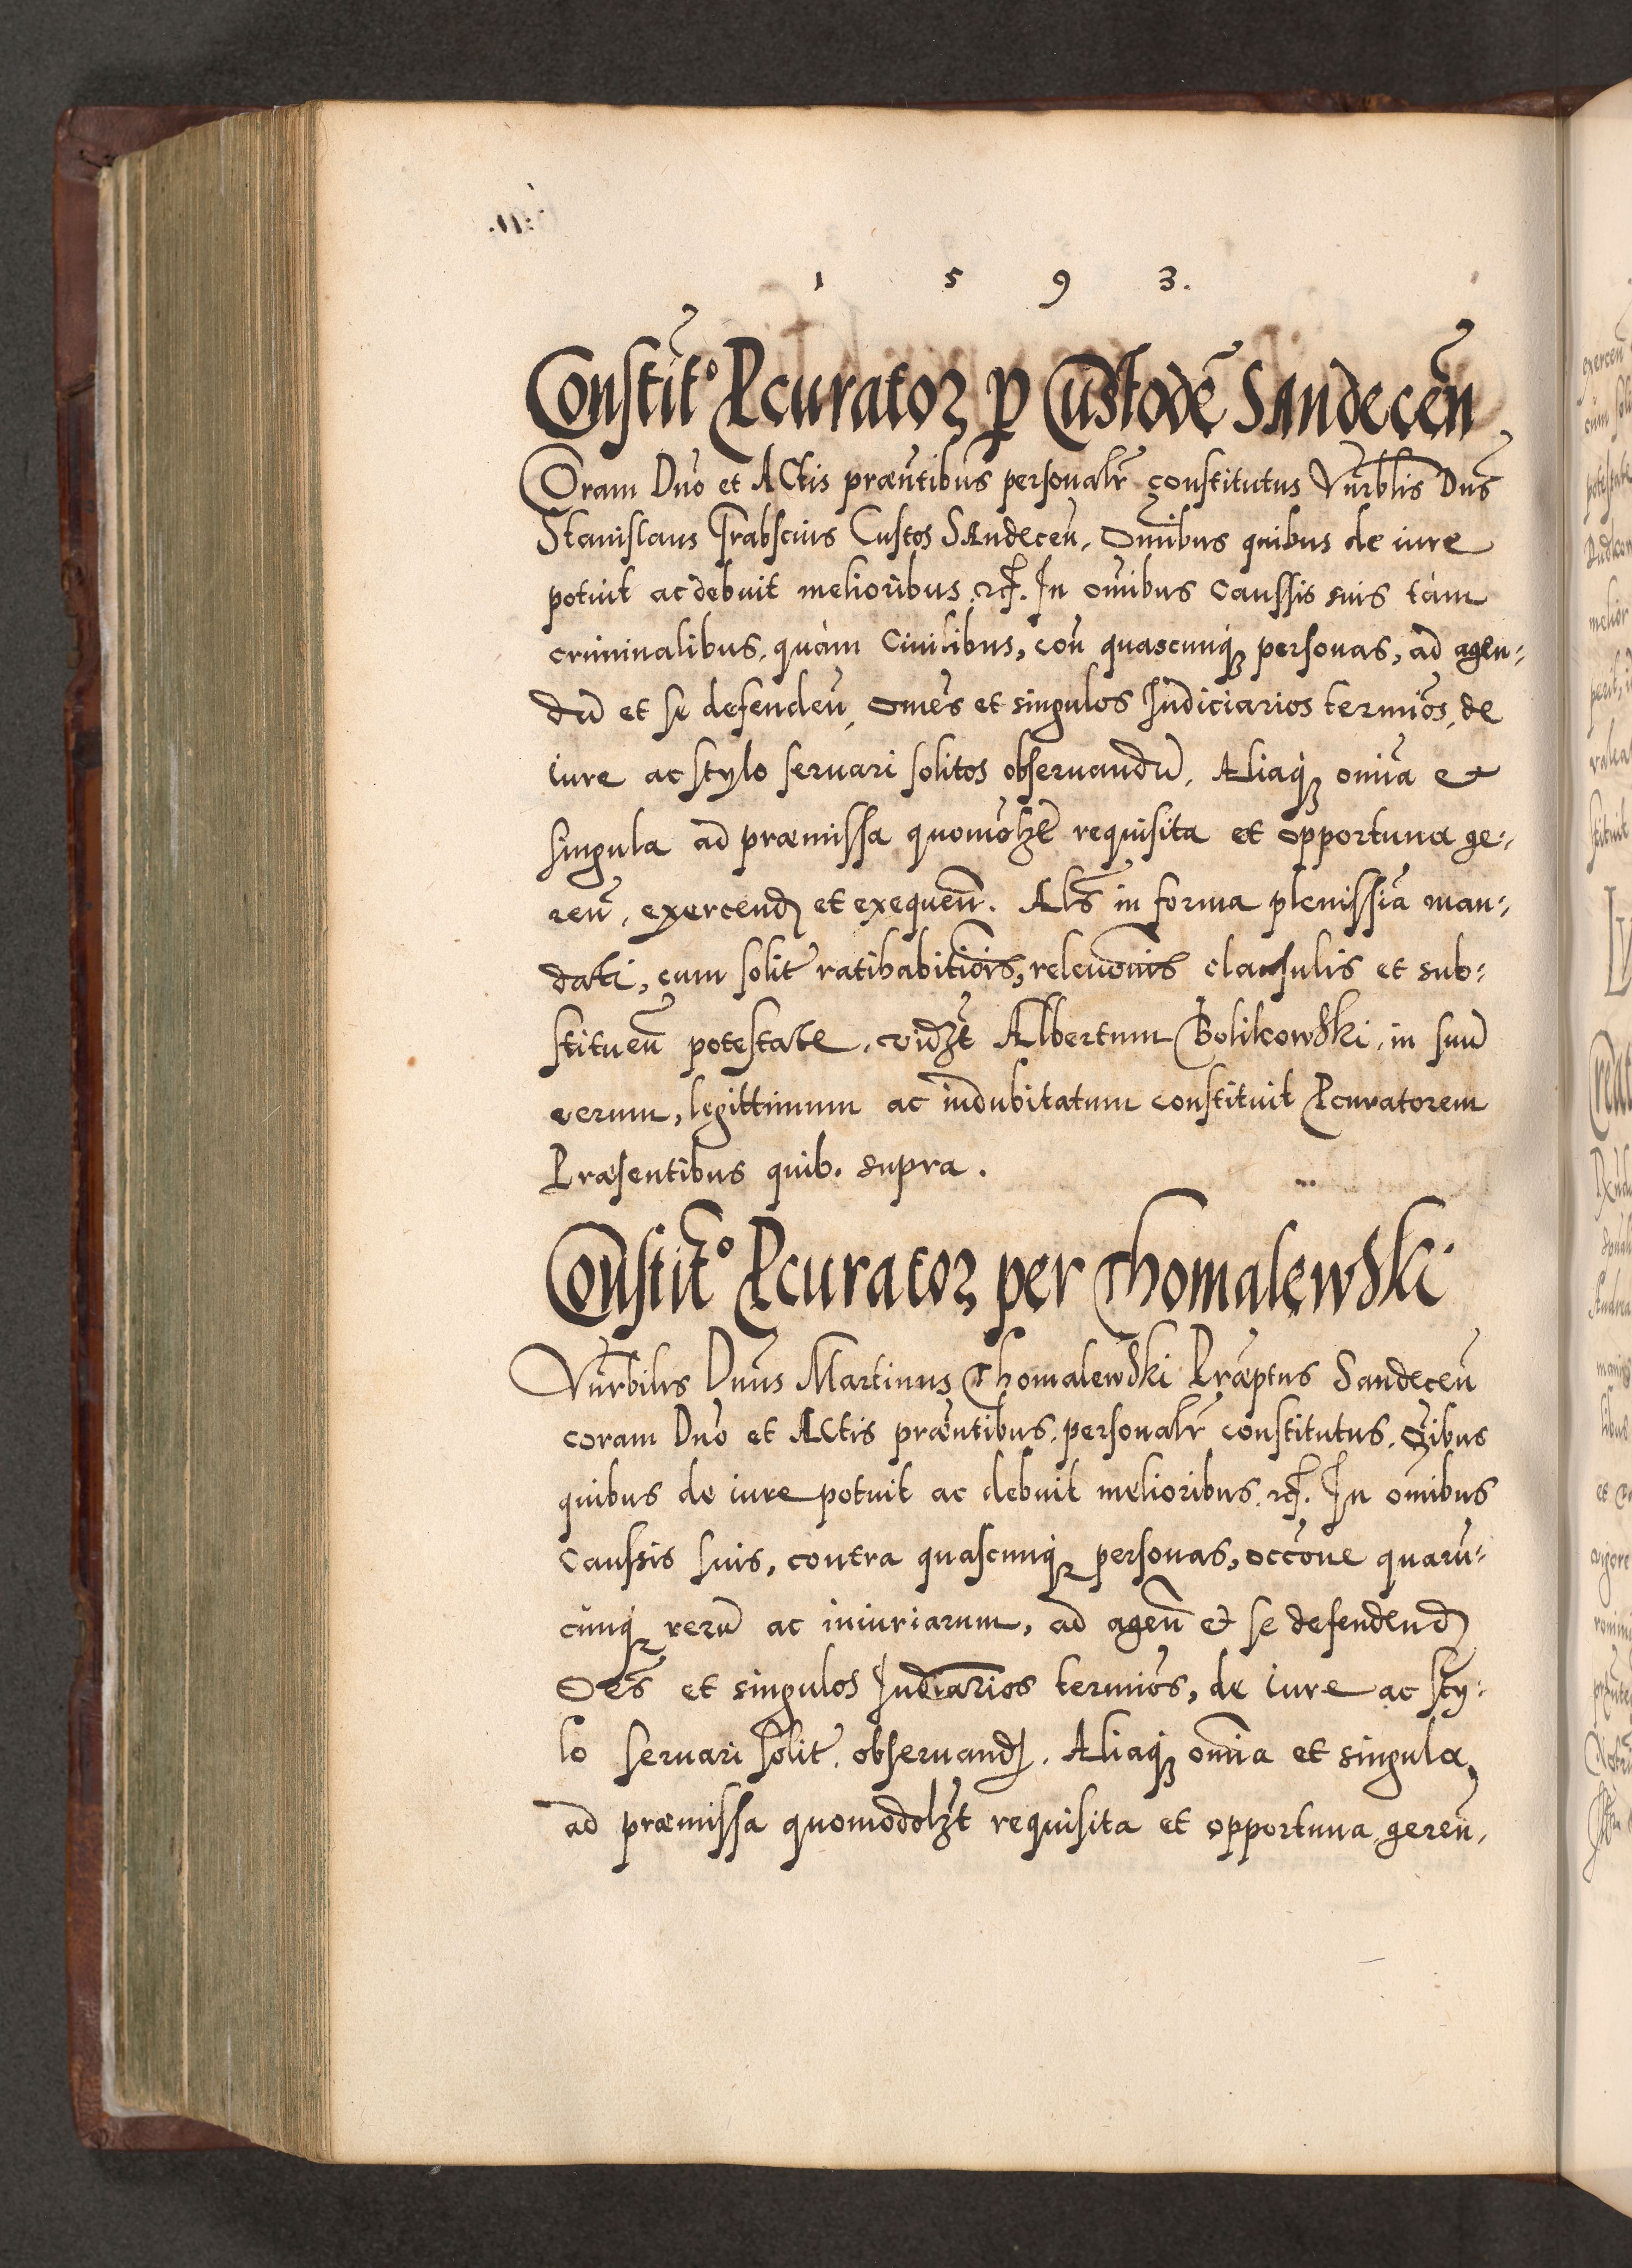 1 5 9 3.
Constit͠o Pcurator p Custodē Sandeceñ
Coram Dño et Actis præñtibus personalr̃ constitutus Vñrblis Dñs
Stanislaus Grabscius Custos Sandeceñ. Om̃ibus quibus de iure
potuit ac debuit melioribus. In om̃ibus Caussis suis tàm
criminalibus, quàm Ciuilibus, coñ quascunq; personas, ad agen=
dū et se defendeñ, Omēs et singulos Iudiciarios term̃ios, de
iure ac stylo seruari solitos obseruandū. Aliaq; om̃ia et
singula ad præmissa quomo͠lzt requisita et opportuna ge=
reñ, exercend et exequeñ. Als̃ in forma plenissiā man=
dati, cum solit ratihabitiõis, releuõnis clausulis et sub=
stitueñ potestate. vidzt Albertum Bolikowski, in suū
verum, legittimum ac indubitatum constituit Pcuratorem
Præsentibus quib. supra.
Constit͠o Pcurator per Thomalewski
Vñrbilis Dñus Martinus Thomalewski Præptus Sandeceñ
coram Dño et Actis præñtibus personalr̃ constitutus. Oĩbus
quibus de iure potuit ac debuit melioribus. In om̃ibus
Caussis suis, contra quascunq; personas, occõne quarū=
cunq; rerū ac iniuriarum, ad ageñ et se defendend
Oẽs et singulos Iudiarios term̃ios, de iure ac sty=
lo seruari solit. obseruand. Aliaq; om̃ia et singula,
ad præmissa quomodolzt requisita et opportuna gereñ,